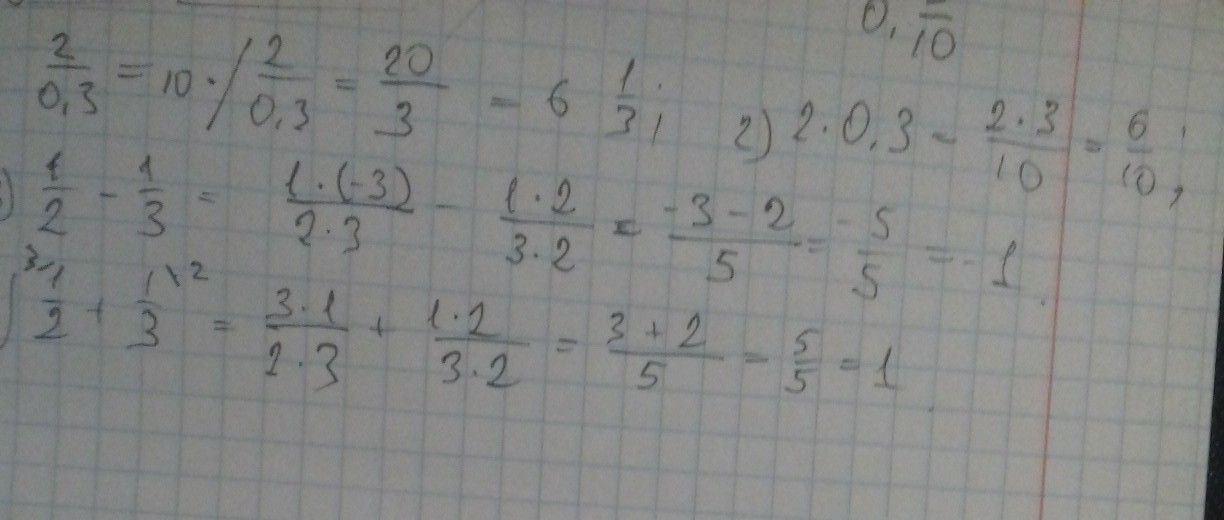 0, —/10
2/0,3 = 10 · / 2/0,3 = 20/3 = 6 1/3; 2) 2 · 0,3 = 2 · 3/10 = 6/10;
) 1/2 - 1/3 = 1 · (-3)/2 · 3 - 1 · 2/3 · 2 = -3 - 2/5 = -5/5 = -1
3 1/2 + 1\2/3 = 3 · 1/2 · 3 + 1 · 2/3 · 2 = 3 + 2/5 = 5/5 = 1